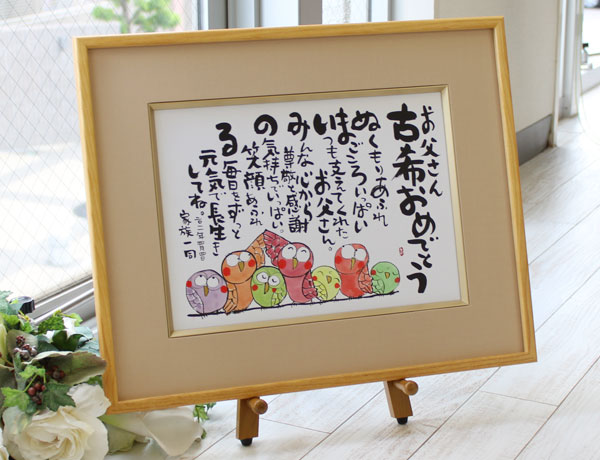 お父さん
古希おめでとう
ぬくもりあふれ
まごころいっぱい
いつも支えてくれた
お父さん。
みんな心から
尊敬と感謝
の気持ちでいっぱい。
笑顔あふれ
る毎日をずっと
元気で長生き
してね。
家族一同